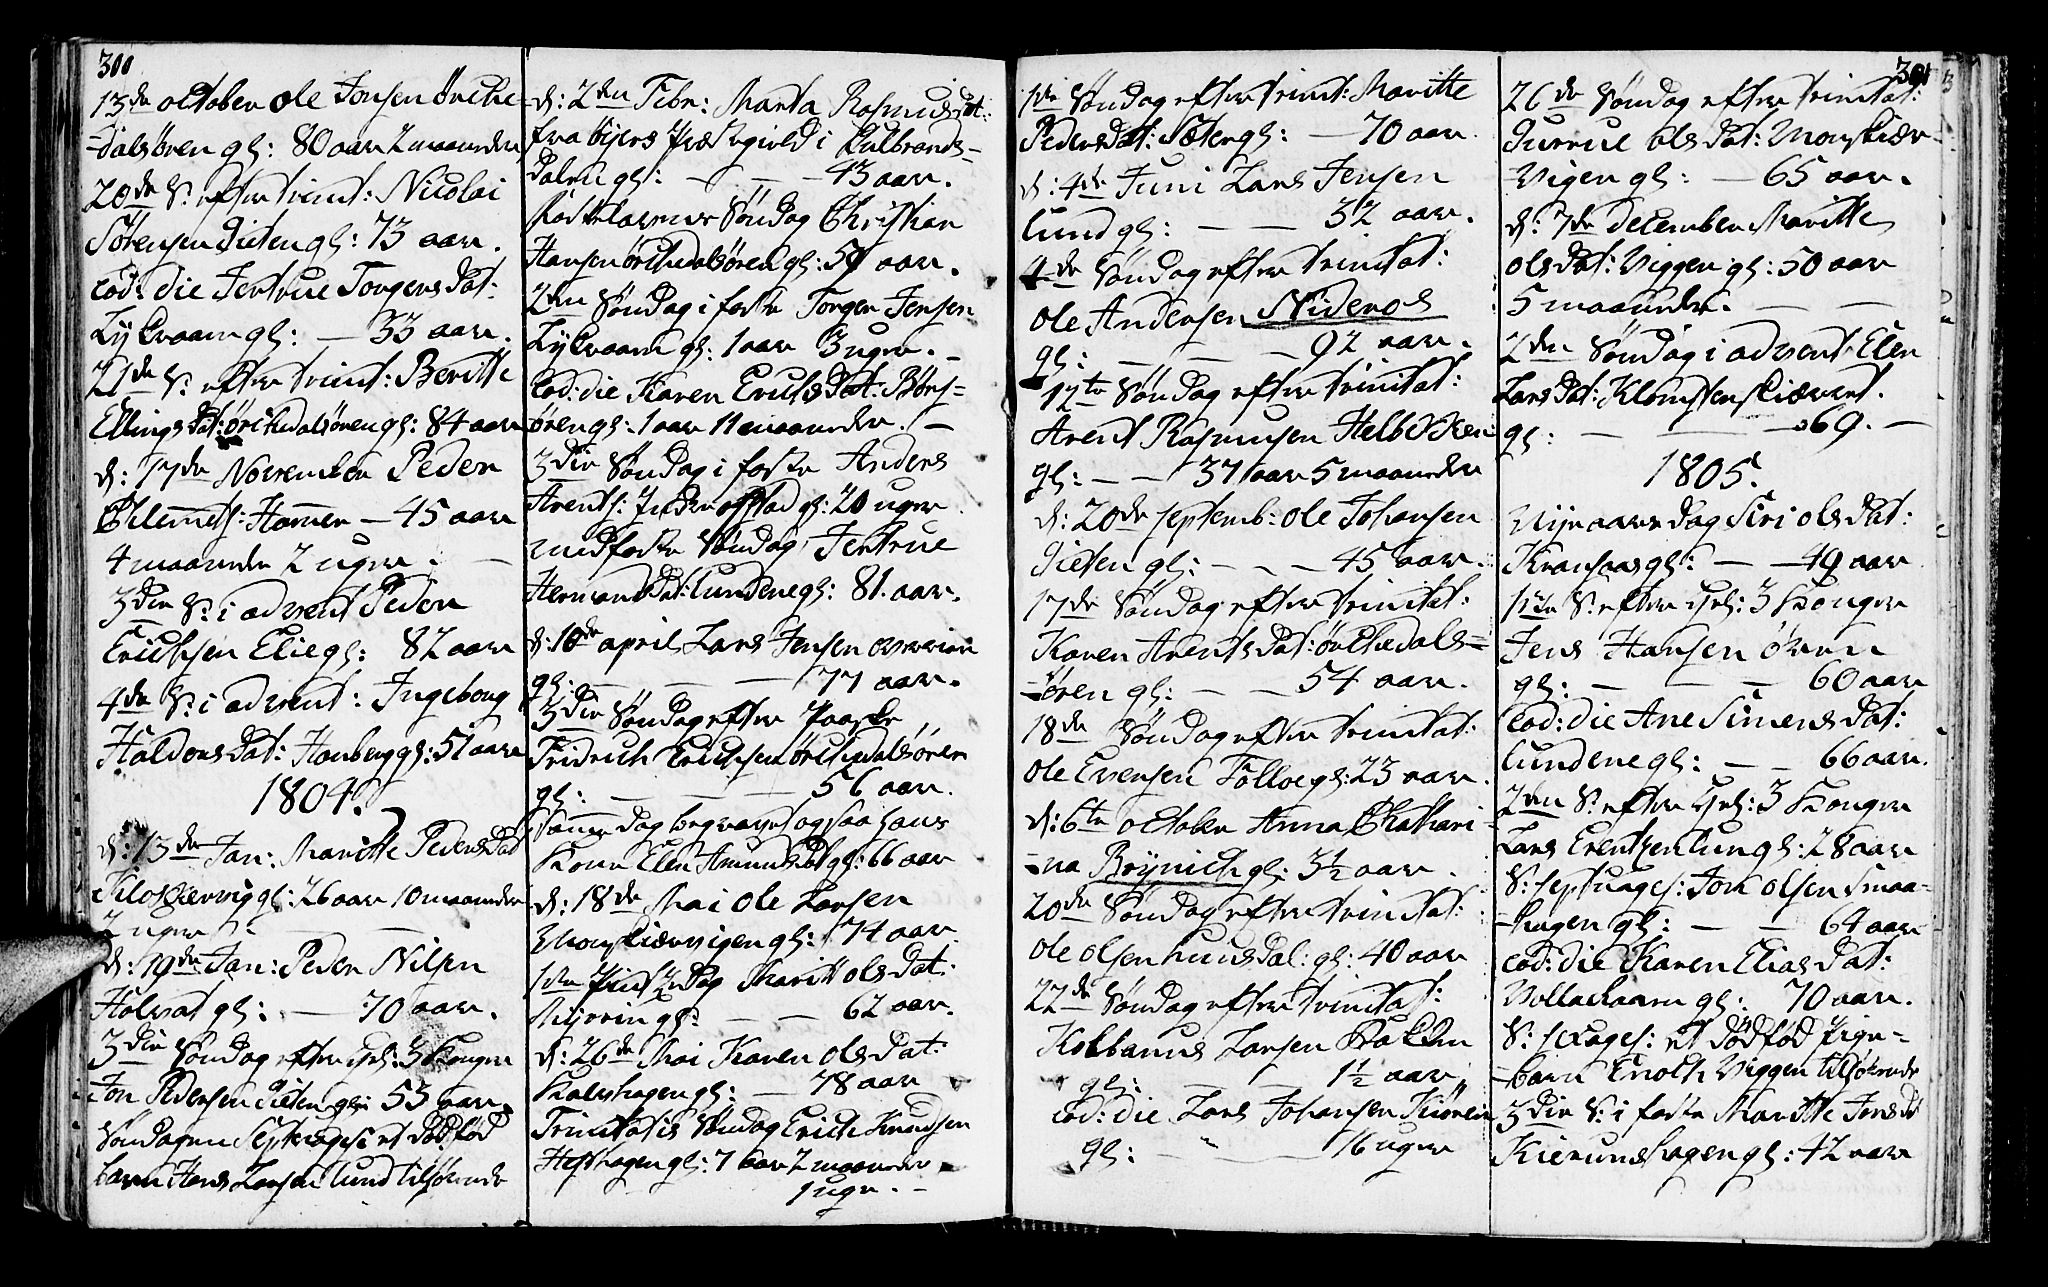 300
13de october Ole Jonsen Örche-
-dalsören gl: 80 aar 2 maaneder
20de S: efter trinit: Nicolai
Sörensen Gieten gl: 73 aar.
eod: die Jertrue Torgersdat:
Lykvaam gl: — 33 aar.
21de S: efter trinit: Beritte
Ellingsdat: Örchedalsören gl: 84 aar
d: 17de November Peder
Chlemets: Hammer — 45 aar
4 maaneder 2 uger.
3die S: i advent Peder
Erichsen Elie gl: 82 aar
4de S: i advent: Ingeborg
Haldorsdat: Hanberg gl: 51 aar
1804.
d: 13de Jan: Maritte Pedersdat
gl: 26 aar 10 maaneder
2 uger.
d: 19de Jan: Peder Nilsen
Holvat gl: — 70 aar.
3die Söndag efter Hel: 3 Konger
Jon Pedersen Gieten gl: 53 aar.
Söndagen Septuages: et dödföd
barn Hans Larsen Lund tilhörende
d: 2den Febr: Marta Rasmusdat:
fra Öyers Præstegield i Gulbrands-
dalen gl: — — 43 aar.
Fastelavens Söndag Christian
Hansen Örchedalsören gl: 59 aar.
2den Söndag i faste Torger Jensen
Lykvaam gl: 1 aar 3 uger. —
eod: die Karen Erichsdat: Börs-
ören gl: 1 aar 11 maaneder. —
3die Söndag i faste Anders
Arents: gl: 20 uger
midfaste Söndag Jertrue
Hermansdat: Lundene gl: 81. aar.
d: 10de april Lars Jensen
gl: — — — 77 aar.
3die Söndag efter Paaske
Fridrich Erichsen Örchedalsören
gl: — — — 56 aar.
Samme dag begravet ogsaa hans
Kone Elen Amundsdat gl: 66 aar
d: 18de Mai Ole Larsen
Monskiærvigen gl: 74 aar.
1ste Pintzedag Marit Olsdat:
Myrrin gl: — — 62 aar.
d: 26de Mai Karen Olsdat:
Kalvshagen gl: — 78 aar
Trinitatis Söndag Erich Knudsen
gl: 7 aar 2 maaneder
1 uge. —
301
1ste Söndag efter trinit: Maritte
Pedersdat: Sæter gl: — 70 aar.
d: 4de Juni Lars Jensen
Lund gl: — — 32 aar.
4de Söndag efter trinitat:
Ole Andersen Nideros
gl: — — — 92 aar.
12te Söndag efter trinitat:
Arent Rasmusen Helbekken
gl: — — 37 aar 5 maaneder
d: 20de septemb: Ole Johansen
Gieten gl: — — — 45 aar.
17de Söndag efter trinitat:
Karen Arentsdat: Örchedals-
-ören gl: — — 54 aar.
18de Söndag efter trinitat:
Ole Evensen Follve gl: 23 aar.
d: 6te october Anna Chathari-
-na Brÿnich gl: 3½ aar.
20de Söndag efter trinitat:
Ole Olsen huusdal: gl: 40 aar
22de Söndag efter trinitat:
Kolbanus Larsen Bakken
gl: — — 1½ aar
eod: die Lars Johansen Kiören
gl: — — 16 uger
26de Söndag efter trinitat:
Gurrue Olsdat: Monskiær-
vigen gl: — 65 aar.
d: 7de december Maritte
Olsdat: Viggen gl: 50 aar
5 maaneder. — —
2den Söndag i advent Elen
Larsdat: Klomstenskiæret.
gl: — — — 69. —
1805.
Nÿeaarsdag Siri Olsdat:
Kransaas gl: — — 49 aar
1ste S: efter Hel: 3 Konger
Jens Hansen Öeren
gl: — — — 60 aar
eod: die Ane Simensdat:
Lundene gl: — — 66 aar.
2den S: efter Hel: 3 Konger
Lars Erentsen Lun gl: 28 aar
S: septuages: Jon Olsen Smaa-
-hagen gl: — — 64 aar
eod: die Karen Eliasdat:
Vollachaam gl: 70 aar.
S: sexages: et dödföd pige-
-barn Enoch Viggen tilhörende
3die S: i faste Maritte Jensd:
gl: 42 aar